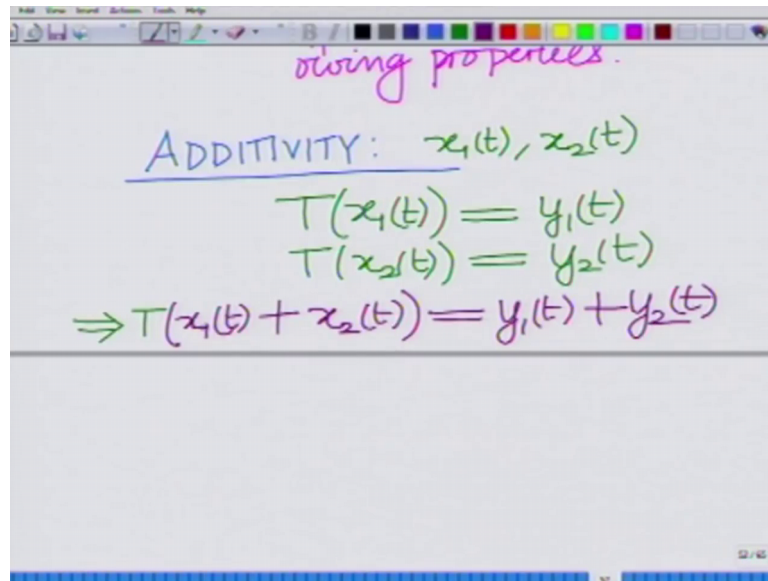 Edit View Insert Actions Tools Help
B I
owing properties.
ADDITIVITY: x₁(t), x₂(t)
T(x₁(t)) = y₁(t)
T(x₂(t)) = y₂(t)
⇒ T(x₁(t) + x₂(t)) = y₁(t) + y₂(t)